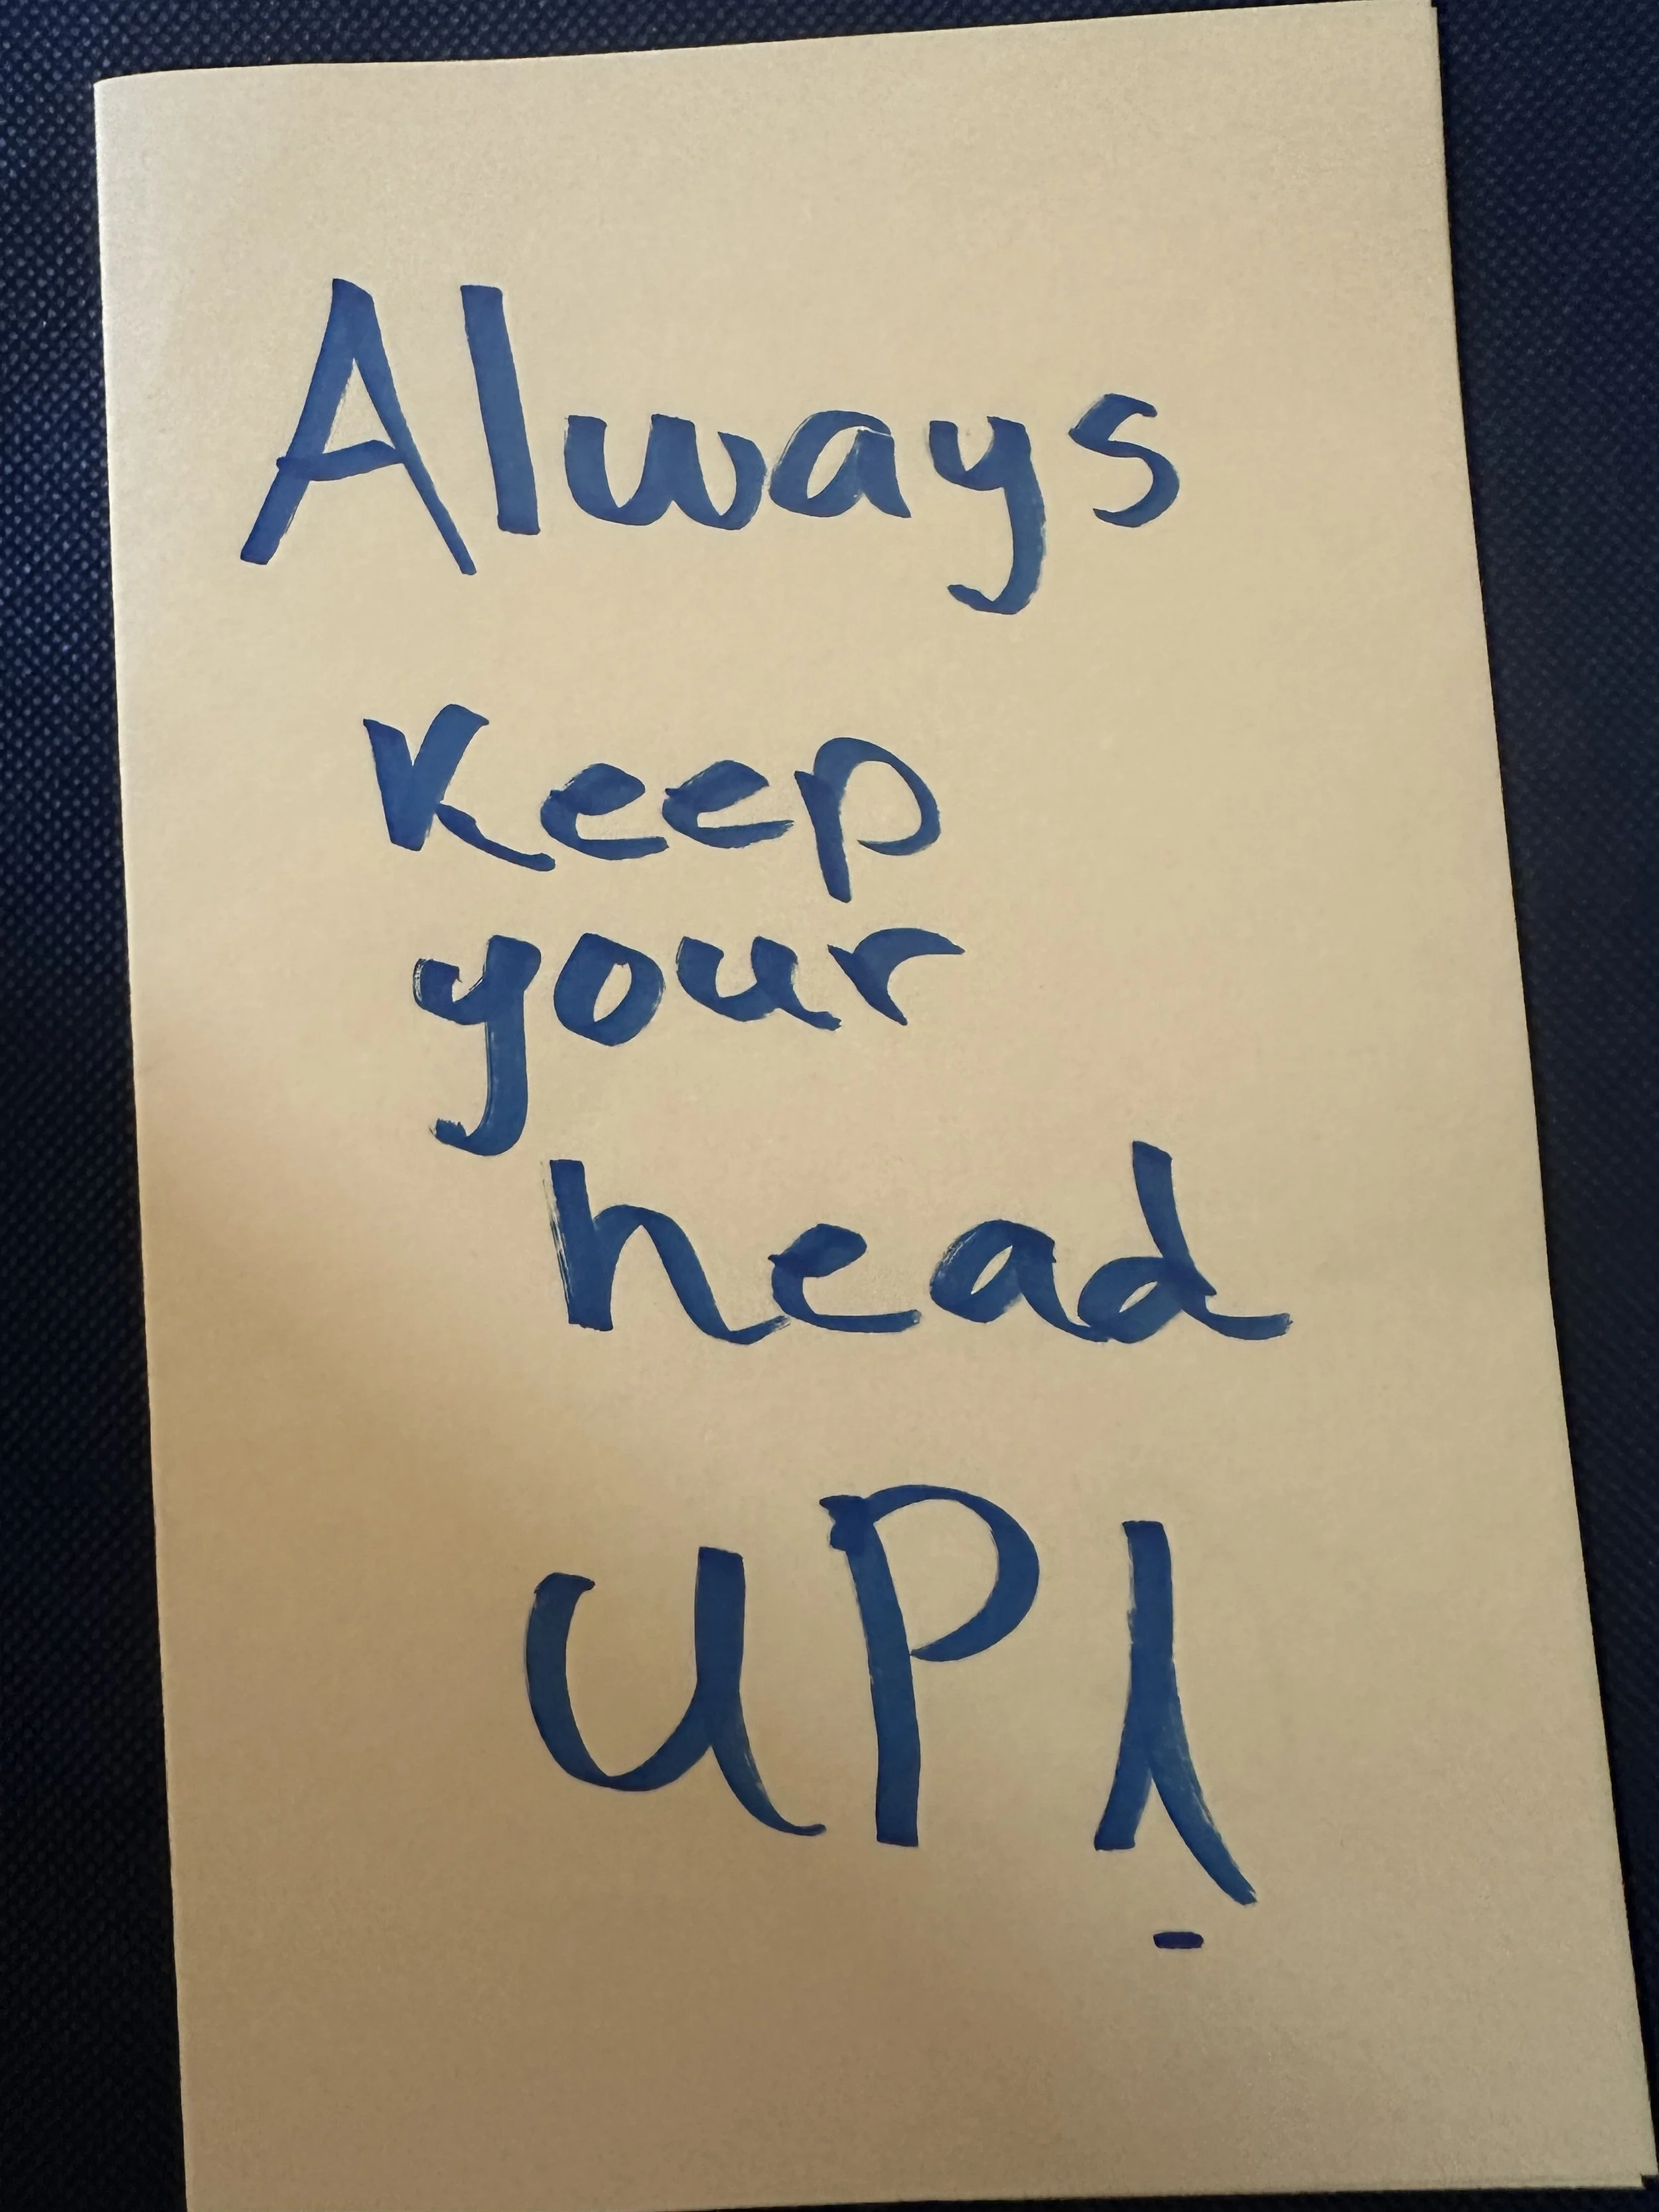 Always
Keep
your
head
UP!